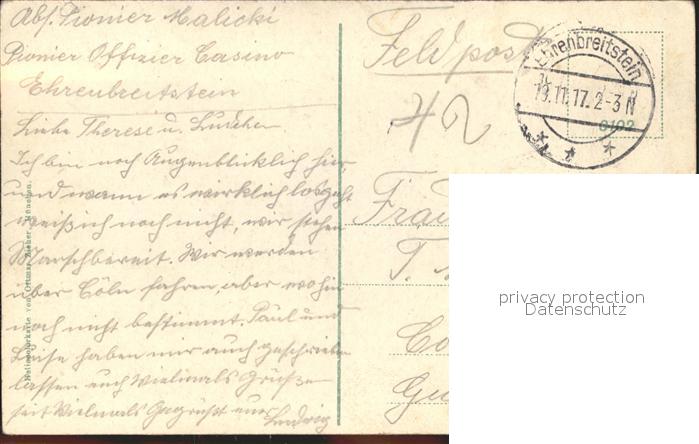 Abs. Pionier Malicki
Pionier Offizier Casino
Ehrenbreitstein
Liebe Therese u. Luischen
Ich bin noch Augenblicklich hier,
und wann es wirklich losgeht
weiß ich noch nicht, wir stehen
Marschbereit. Wir werden
über Cöln fahren, aber wohin
noch nicht bestimmt. Paul und
Luise haben mir auch geschrieben
lassen euch Vielmals Grüße
seit Vielmals Gegrüßt von
Ludwig
Feldpost
Ehrenbreitstein
19.11.17. 2-3 N
* * *
6102
42
Frau
T.
Co
Gu
privacy protection
Datenschutz